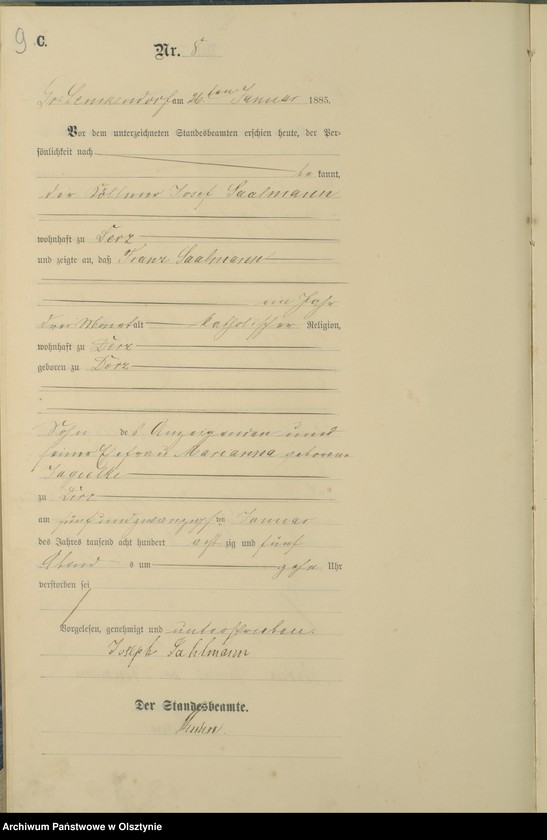 9 C.
Nr. 8
Gr. Lemkendorf am 26ten Januar 1885.
Vor dem unterzeichneten Standesbeamten erschien heute, der Per-
sönlichkeit nach
be kannt,
der Köllmer Josef Saalmann
wohnhaft zu Derz
und zeigte an, daß Franz Saalmann
ein Jahr
drei Monat alt katholischer Religion,
wohnhaft zu Derz
geboren zu Derz
Sohn des Anzeigenden und
seiner Ehefrau Marianna geborene
zu Derz
am fünfundzwanzigsten Januar
des Jahres tausend acht hundert acht zig und fünf
Abend s um zehn Uhr
verstorben sei
Vorgelesen, genehmigt und unterschrieben.
Joseph Sahlmann
Der Standesbeamte.
Archiwum Państwowe w Olsztynie